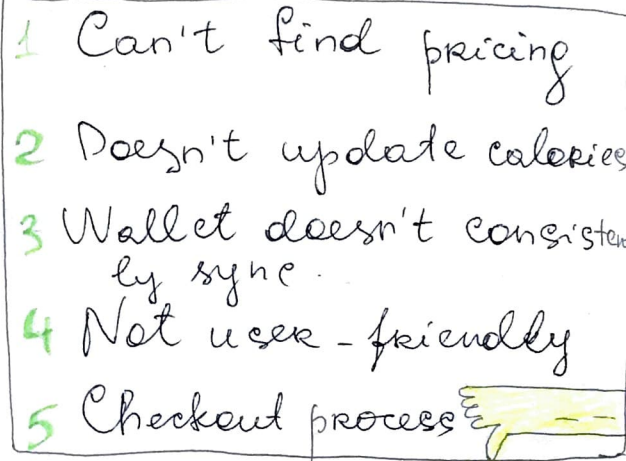 1 Can't find pricing
2 Doesn't update calories
3 Wallet doesn't consisten
ly sync.
4 Not user-friendly
5 Checkout process